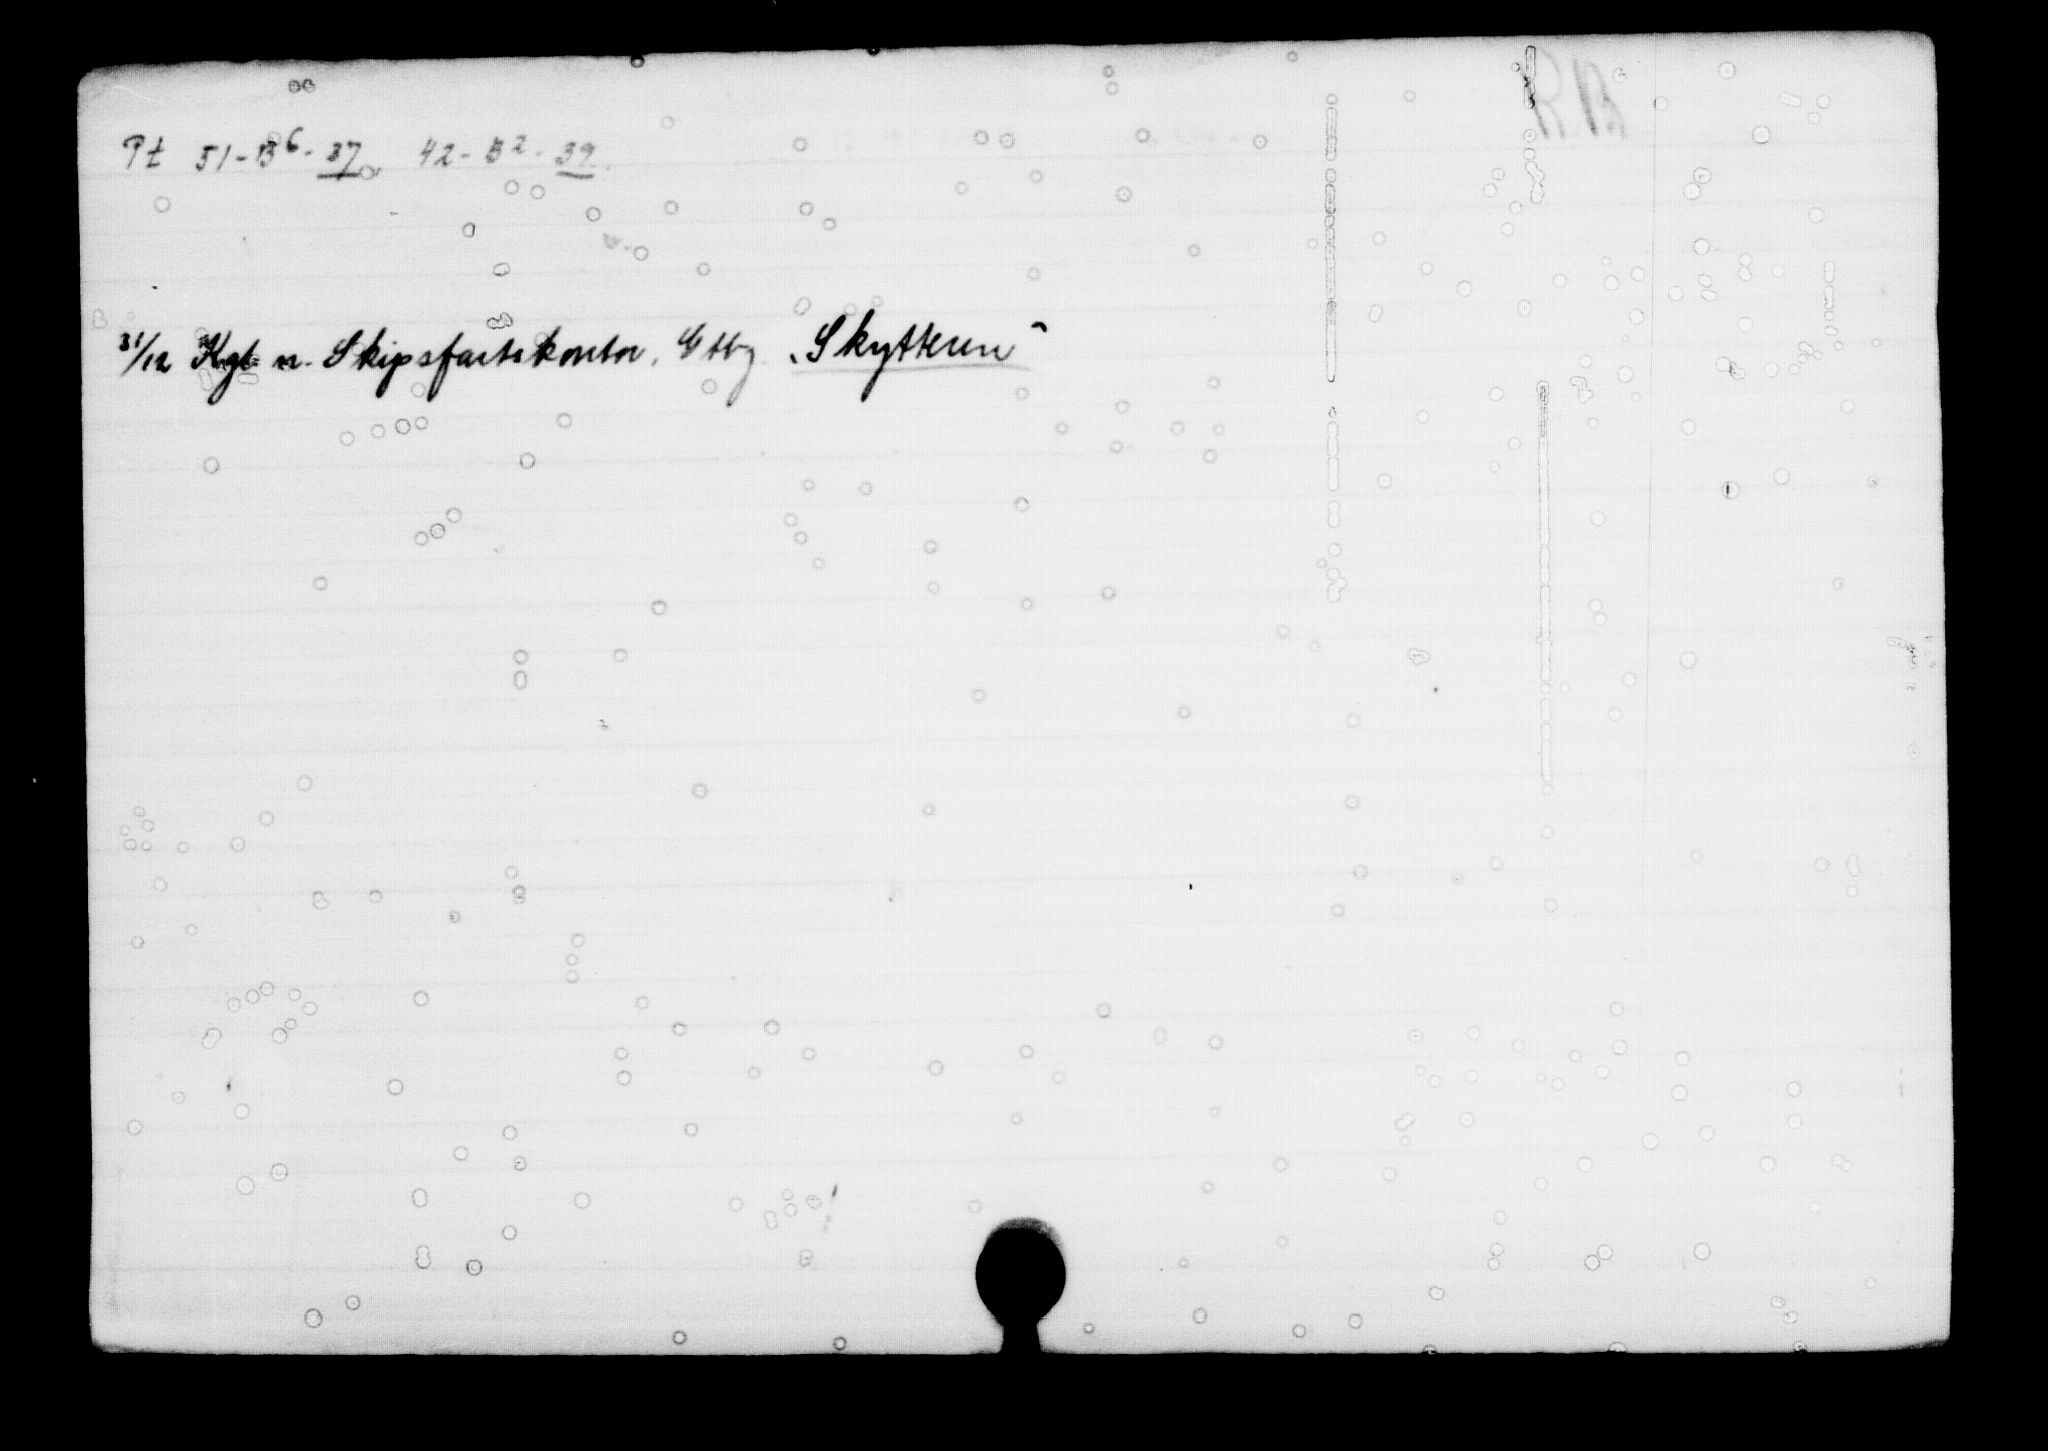 R.A.
Pt 51-B6-37, 42-B2-39.
31/12 Kgl. n. Skipsfartskontor, Gtbg. „Skytteren"